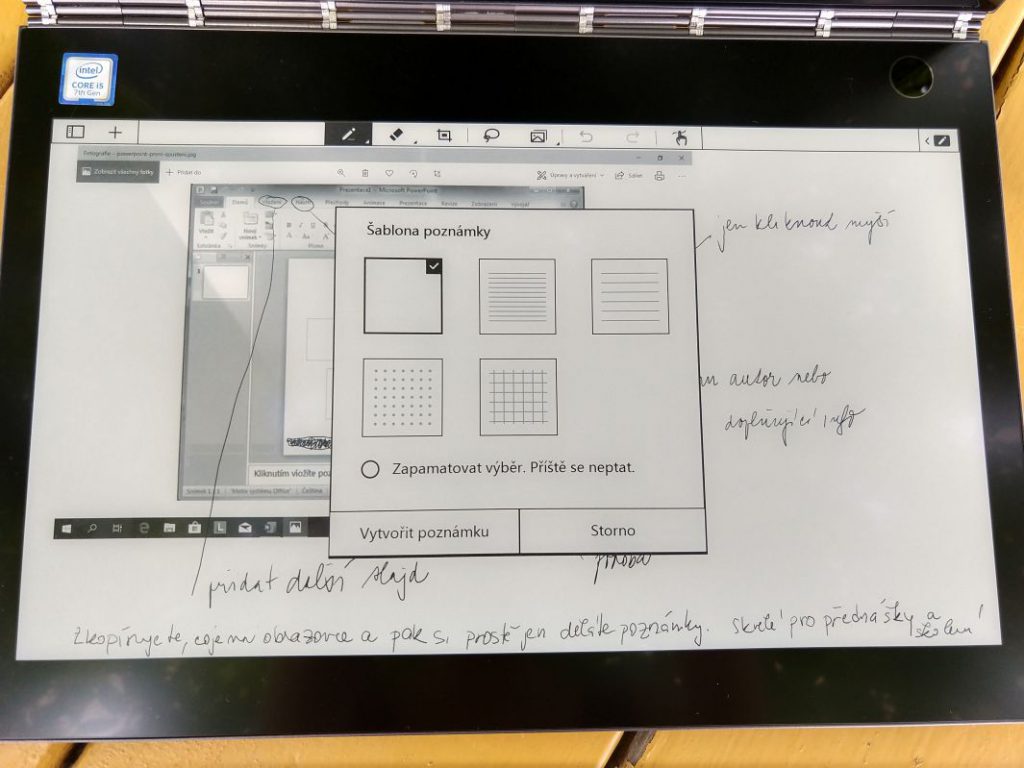 intel
CORE i5
7th Gen
Fotografie - powerpoint-prvni-spusteni.jpg
Zobrazit všechny fotky
Přidat do
Úpravy a vytváření
Sdílet
Prezentace1 - Microsoft PowerPoint
Soubor Domů Vložení Návrh Přechody Animace Prezentace Revize Zobrazení Vývojář
Vložit
Nový
snímek
Schránka
Snímky
Písmo
Šablona poznámky
jen kliknout myší
autor nebo
doplňující info
1
Kliknutím vložíte poz
Zapamatovat výběr. Příště se neptat.
Snímek 1 z 1 "Motiv systému Office" Čeština
Vytvořit poznámku
Storno
přidat další slajd
Zkopírujete, co je na obrazovce a pak si prostě jen děláte poznámky. Skvělé pro přednášky a školení!